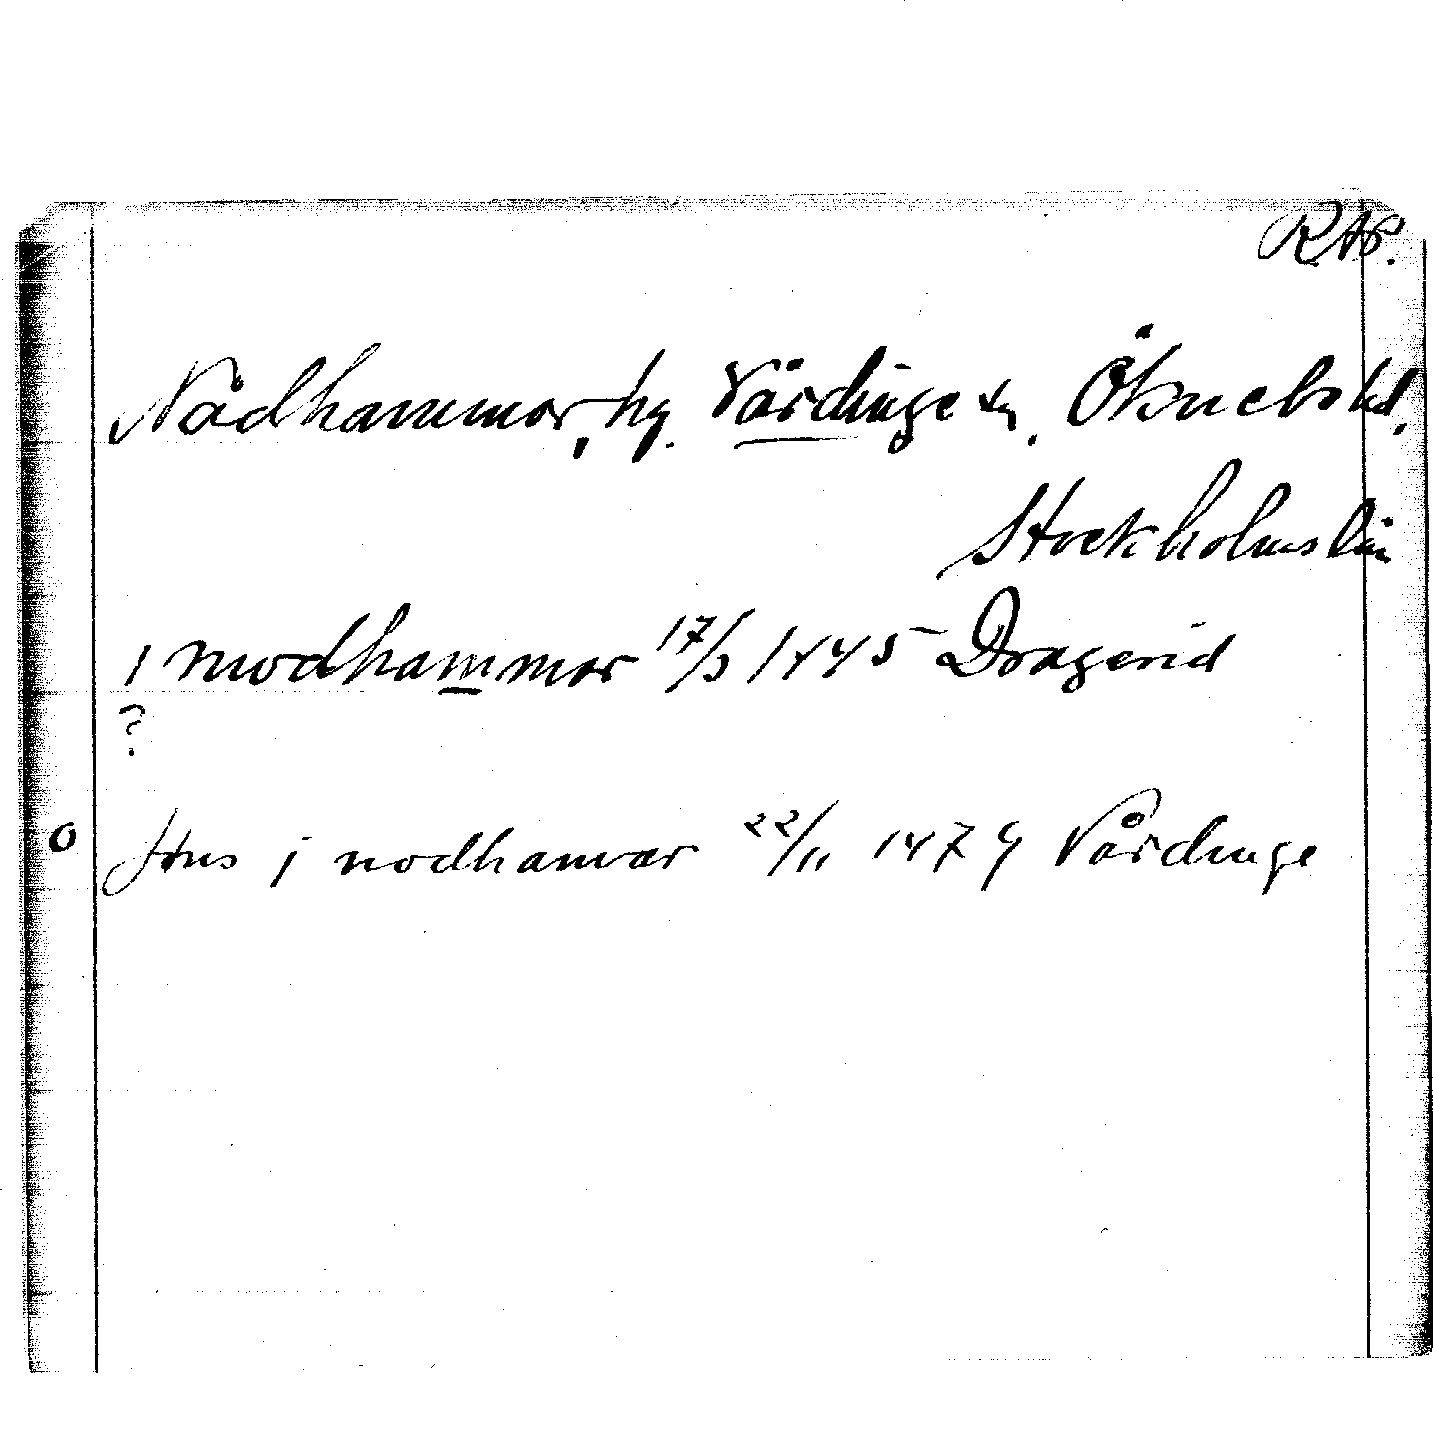 RAP.
Nådhammar, by. Vårdinge sn. Öknebo hd.
Stockholms län
i nwodhammar 17/3 1445 Dragerid
?
o Hus i nodhamar 22/11 1479 Vårdinge